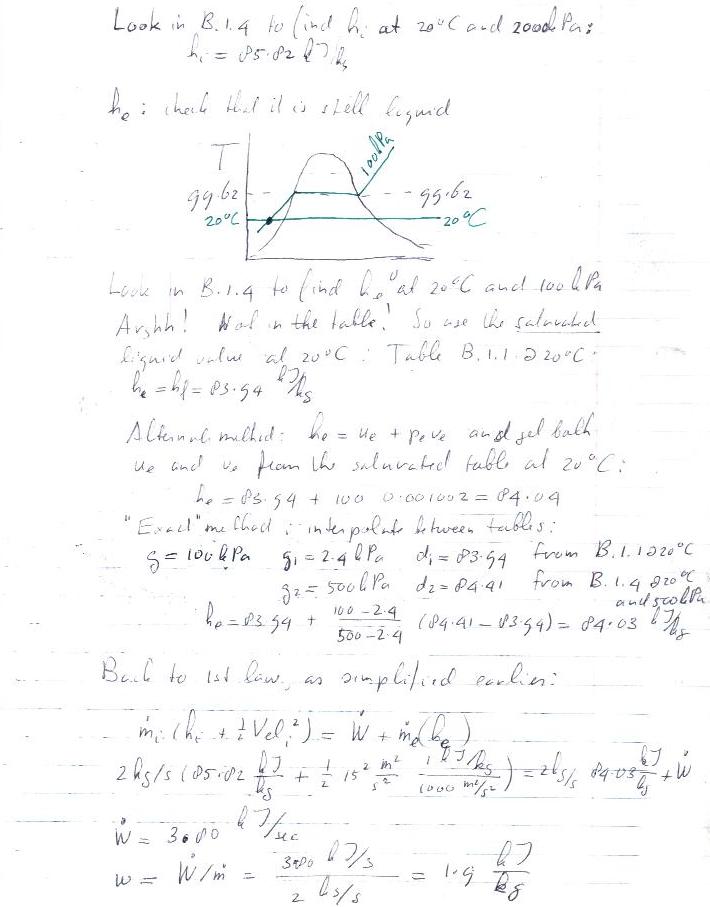 Look in B.1.4 to find hi at 20°C and 2000kPa:
hi = 85.82 kJ/kg
he: check that it is still liquid
T
100kPa
99.62 99.62
20°C 20°C
Look in B.1.4 to find he at 20°C and 100 kPa
Arghh! Not in the table! So use the saturated
liquid value at 20°C: Table B.1.1 @ 20°C.
he = hf = 83.94 kJ/kg
Alternate method: he = ue + peve and get both
ue and ve from the saturated table at 20°C:
he = 83.94 + 100 0.001002 = 84.04
"Exact" method: interpolate between tables:
g = 100 kPa g1 = 2.4 kPa d1 = 83.94 from B.1.1 @ 20°C
g2 = 500 kPa d2 = 84.41 from B.1.4 @ 20°C
and 500kPa
he = 83.94 + (100 - 2.4)/(500 - 2.4) (84.41 - 83.94) = 84.03 kJ/kg
Back to 1st law, as simplified earlier:
ṁi (hi + ½ Veli²) = Ẇ + ṁe(he)
2 kg/s (85.82 kJ/kg + ½ 15² m²/s² 1 kJ/kg / 1000 m²/s²) = 2 kg/s 84.03 kJ/kg + Ẇ
Ẇ = 3.80 kJ/sec
w = Ẇ/ṁ = 3.80 kJ/s / 2 kg/s = 1.9 kJ/kg